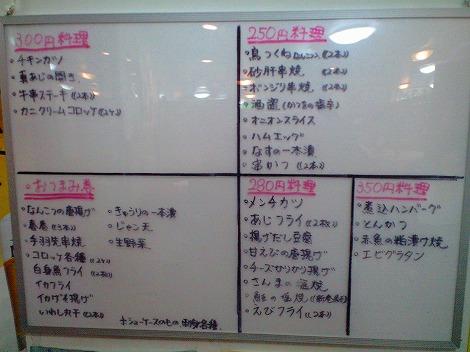 300円料理
・チキンカツ
・真あじの開き
・牛串ステーキ (2本)
・カニクリームコロッケ(2ヶ)
250円料理
・鳥つくね (2本)
・砂肝串焼 (2本)
・ボンジリ串焼 (2本)
・酒盗 (かつおの塩辛)
・オニオンスライス
・ハムエッグ
・なすの一本漬
・串かつ (2本)
・おつまみ巻
・なんこつの唐揚げ
・春巻 (3本)
・手羽先串焼
・コロッケ各種 (2ヶ)
白身魚フライ
イカフライ
イカゲソ揚げ
いわし丸干 (2本)
・きゅうりの一本漬
・じゃこ天
・生野菜
ショーケースのもの
各種
280円料理
・メンチカツ
・あじフライ (2枚)
・揚げだし豆腐
・甘えびの唐揚げ
・チーズかりかり揚げ
・さんまの塩焼
・鮭の塩焼
・えびフライ (2本)
350円料理
・煮込ハンバーグ
・とんかつ
・赤魚の粕漬け焼
・エビグラタン